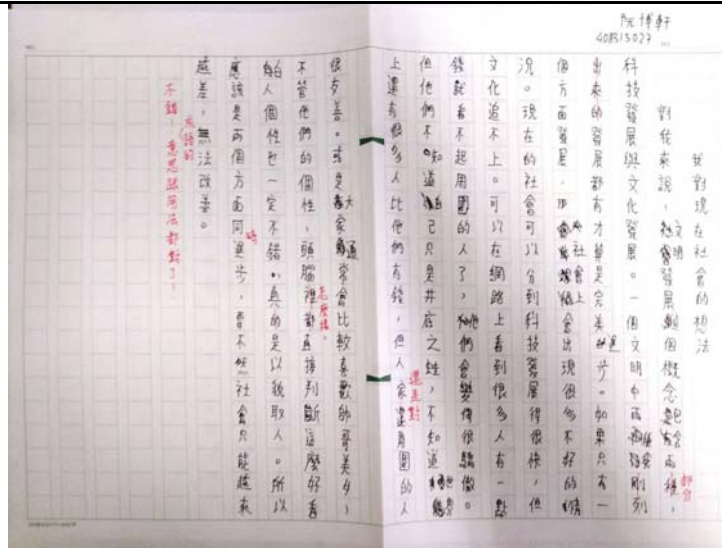 阮博軒
408315027
我對現在社會的想法
對我來說，文明發展這個概念是包含兩種，
科技發展與文化發展。一個文明由兩
出來的發展都有才算是完美進步。如果只有一
個方面發展，社會上會出現很多不好的情
況。現在的社會可以看到科技發展得很快，但
文化追不上。可以在網路上看到很多人有一點
錢就看不起周圍的人了，他們會變得很驕傲。
但他們不知道自己只是井底之蛙，不知道世界
上還有很多人比他們有錢，但人家還是對周圍的人
很友善。或是大家通常會比較喜歡帥哥美女，
不管他們的個性，頭腦裡都直接判斷這麼好看
的人個性也一定不錯。真的是以貌取人。所以
應該是兩個方面同時進步，要不然社會只能越來
越差，無法改善。
部分
還是對
怎麼樣，
時
成語的
不錯！意思跟用法都對了！